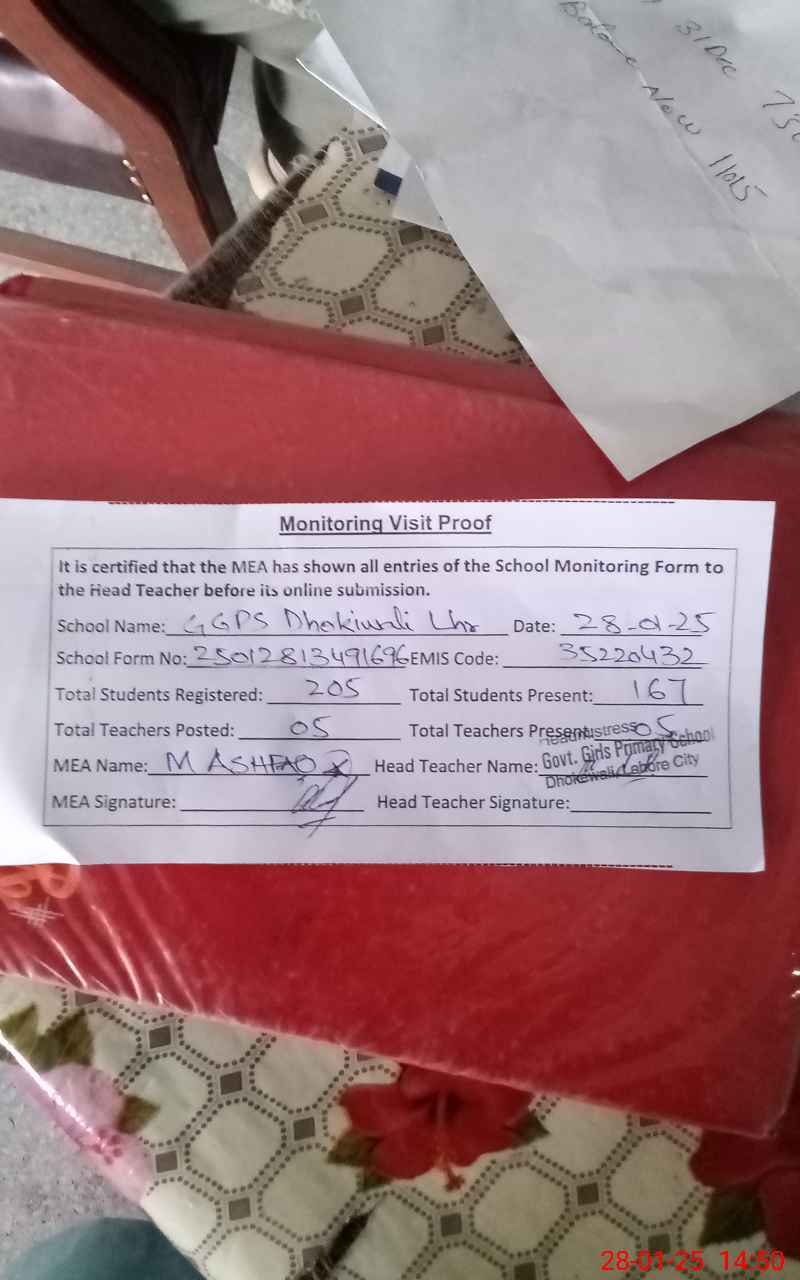 31 Dec
Balance Now
Monitoring Visit Proof
It is certified that the MEA has shown all entries of the School Monitoring Form to
the Head Teacher before its online submission.
School Name: GGPS Dhokiwali Lhr Date: 28-01-25
School Form No: 25012813491696 EMIS Code: 35220432
Total Students Registered: 205 Total Students Present: 167
Total Teachers Posted: 05 Total Teachers Present: 05
Headmistress
MEA Name: M ASHFAQ Head Teacher Name: Govt. Girls Primary School
Dhokewali Lahore City
MEA Signature: Head Teacher Signature:
28-01-25 14:50